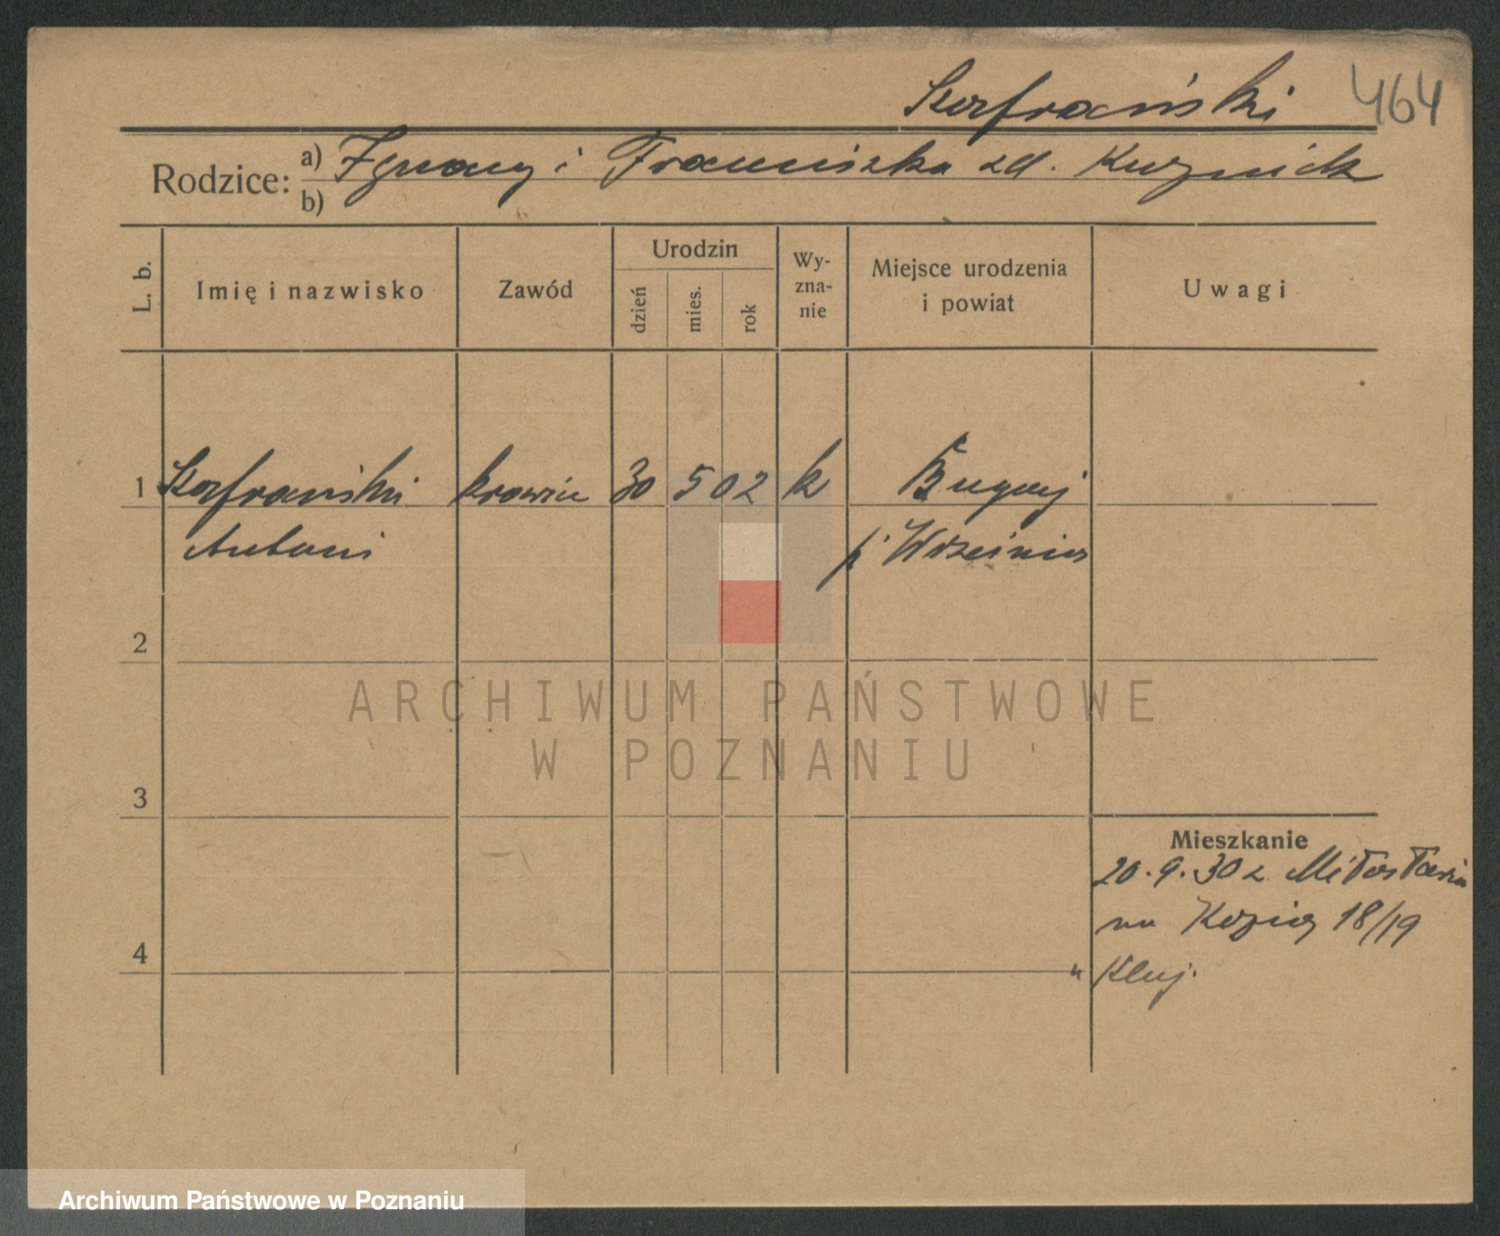 Szafrański 464
Rodzice: a) Ignacy i Franciszka zd.
b)
L. b. Imię i nazwisko Zawód Urodzin dzień mies. rok Wy-zna-nie Miejsce urodzenia i powiat Uwagi
1 Szafrański krawiec 30 5 02 k Bugaj
Antoni p. Września
2
ARCHIWUM PAŃSTWOWE
W POZNANIU
3
Mieszkanie
20.9.30 z Miłosławia
na Kozia 18/19
4
" Kluj.
Archiwum Państwowe w Poznaniu